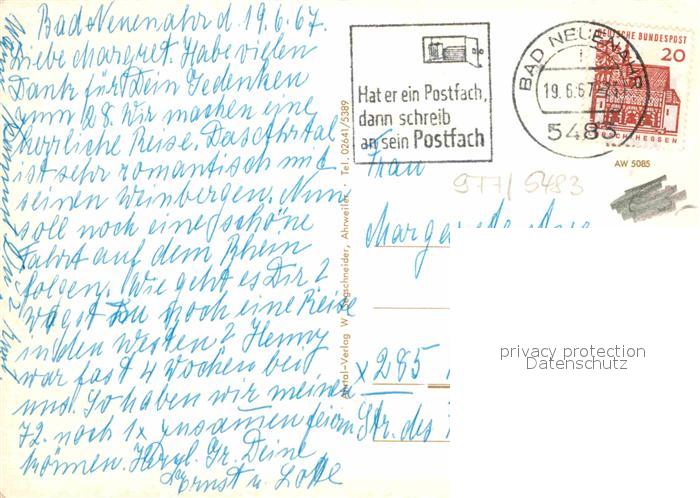 Bad Neuenahr d. 19.6.67.
Liebe Margret. Habe vielen
Dank für Dein Gedenken
zum 28. Wir machen eine
herrliche Reise. Das Ahrtal
ist sehr romantisch mit
seinen Weinbergen. Nun
soll noch eine schöne
Fahrt auf dem Rhein
folgen. Wie geht es Dir?
Wagst Du noch eine Reise
in den Westen? Henny
war fast 4 Wochen bei
uns. So haben wir meinen
72. noch 1x zusamen feiern
können. Herzl. Gr. Deine
Ernst u. Lotte
Ahrtal-Verlag W. Wegschneider, Ahrweiler · Tel. 02641/5389
Hat er ein Postfach,
dann schreib
an sein Postfach
BAD NEUENAHR
19.6.67
5483
DEUTSCHE BUNDESPOST
20
LORSCH/HESSEN
AW 5085
977/5483
Frau
x 285
Str. des
privacy protection
Datenschutz